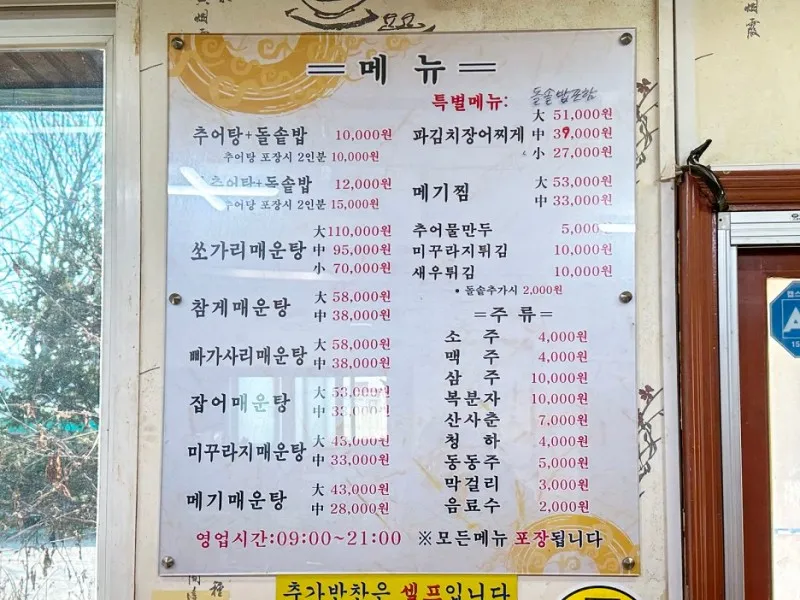 =메 뉴=
추어탕+돌솥밥 10,000원
추어탕 포장시 2인분 10,000원
추어탕+돌솥밥 12,000원
추어탕 포장시 2인분 15,000원
쏘가리매운탕 大 110,000원
中 95,000원
小 70,000원
참게매운탕 大 58,000원
中 38,000원
빠가사리매운탕 大 58,000원
中 38,000원
잡어매운탕 大 53,000원
中 33,000원
미꾸라지매운탕 大 43,000원
中 33,000원
메기매운탕 大 43,000원
中 28,000원
특별메뉴: 돌솥밥포함
파김치장어찌게 大 51,000원
中 39,000원
小 27,000원
메기찜 大 53,000원
中 33,000원
추어물만두 5,000원
미꾸라지튀김 10,000원
새우튀김 10,000원
• 돌솥추가시 2,000원
=주 류=
소 주 4,000원
맥 주 4,000원
삼 주 10,000원
복분자 10,000원
산사춘 7,000원
청 하 4,000원
동동주 5,000원
막걸리 3,000원
음료수 2,000원
영업시간:09:00~21:00 ※모든메뉴 포장됩니다
추가반찬은 셀프입니다